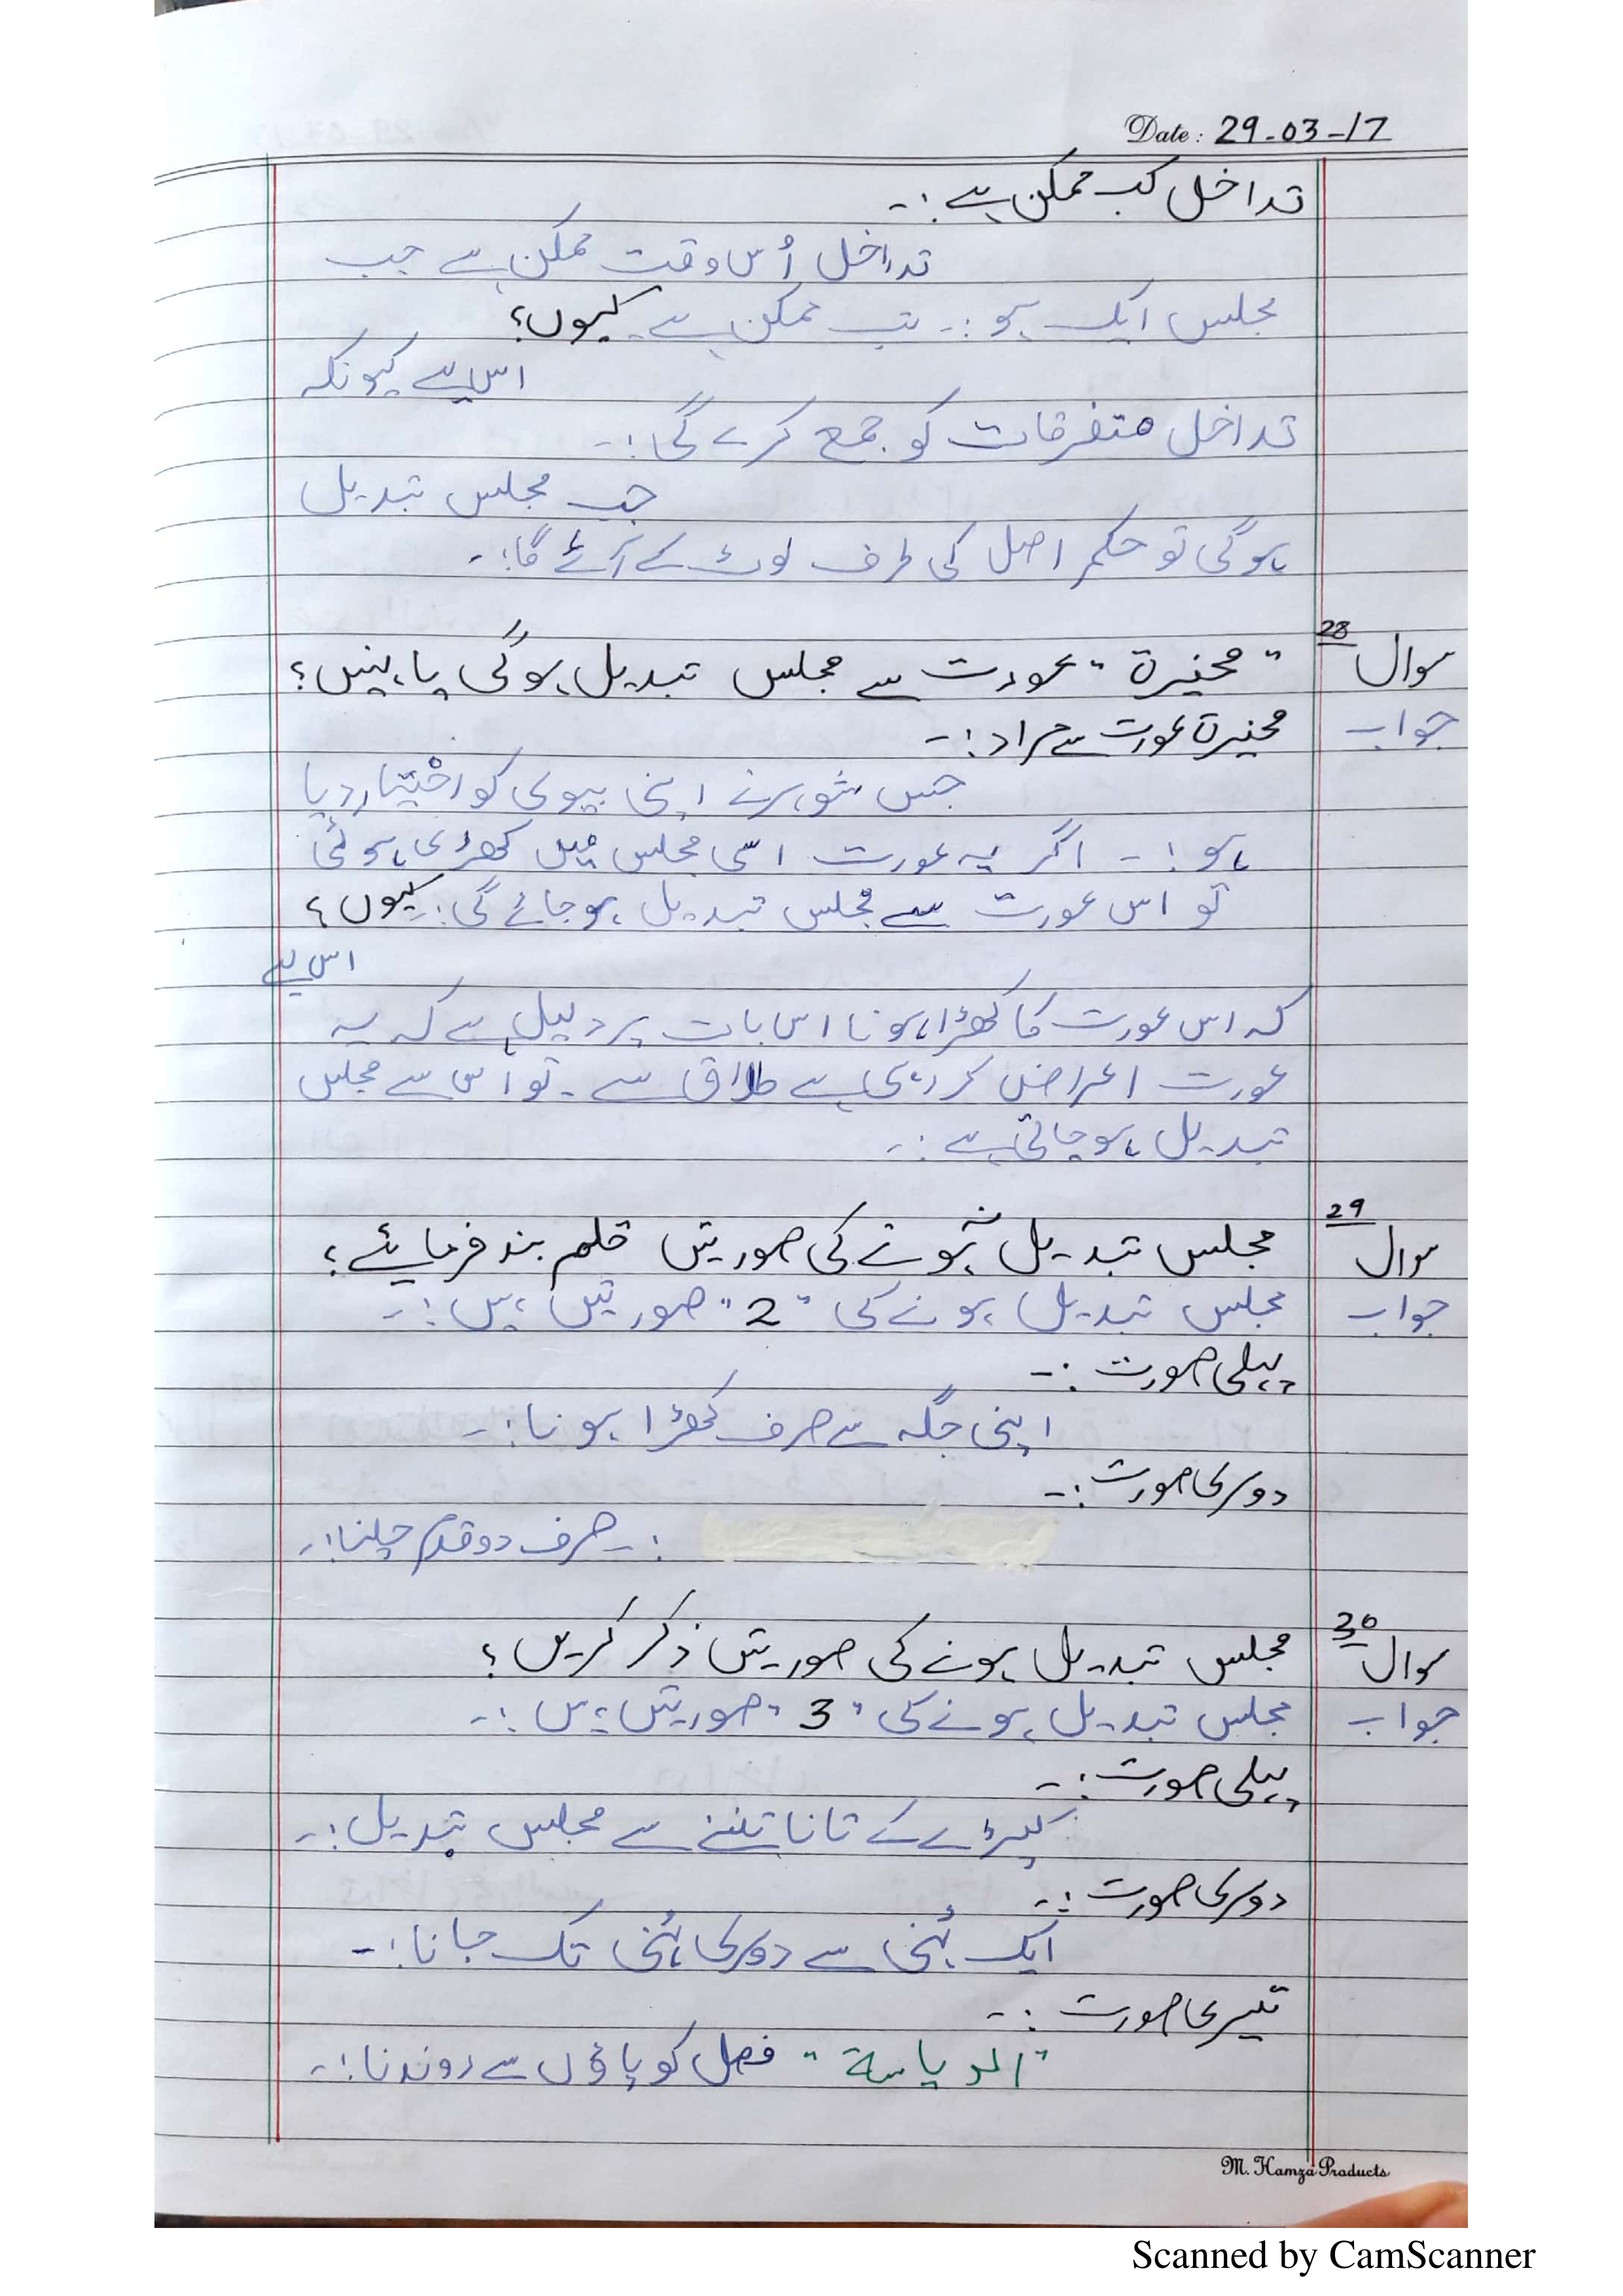 Date: 29-03-17
تداخل کب ممکن ہے :-
تداخل اُس وقت ممکن ہے جب
مجلس ایک ہو :- تب ممکن ہے۔ کیوں؟
اس لیے کیونکہ
تداخل متفرقات کو جمع کرے گی :-
جب مجلس تبدیل
ہوگی تو حکم اصل کی طرف لوٹ کے آئے گا :-
سوال 28 "مخیرۃ" عورت سے مجلس تبدیل ہوگی یا نہیں؟
جواب مخیرۃ عورت سے مراد :-
جس شوہر نے اپنی بیوی کو اختیار دیا
ہو :- اگر یہ عورت اسی مجلس میں کھڑی ہوئی
تو اس عورت سے مجلس تبدیل ہو جائے گی :- کیوں؟
اس لیے
کہ اس عورت کا کھڑا ہونا اس بات پر دلیل ہے کہ یہ
عورت اعراض کر رہی ہے طلاق سے۔ تو اُس سے مجلس
تبدیل ہو جاتی ہے :-
سوال 29 مجلس تبدیل نہ ہونے کی صورتیں قلم بند فرمائیے؟
جواب مجلس تبدیل ہونے کی "2" صورتیں ہیں :-
پہلی صورت :-
اپنی جگہ سے صرف کھڑا ہونا :-
دوسری صورت :-
:- صرف دو قدم چلنا :-
سوال 30 مجلس تبدیل ہونے کی صورتیں ذکر کریں؟
جواب مجلس تبدیل ہونے کی "3" صورتیں ہیں :-
پہلی صورت :-
کپڑے کے تانا تننے سے مجلس تبدیل :-
دوسری صورت :-
ایک ٹہنی سے دوسری ٹہنی تک جانا :-
تیسری صورت :-
"الدیاسة" فصل کو پاؤں سے روندنا :-
M. Hamza Products
Scanned by CamScanner